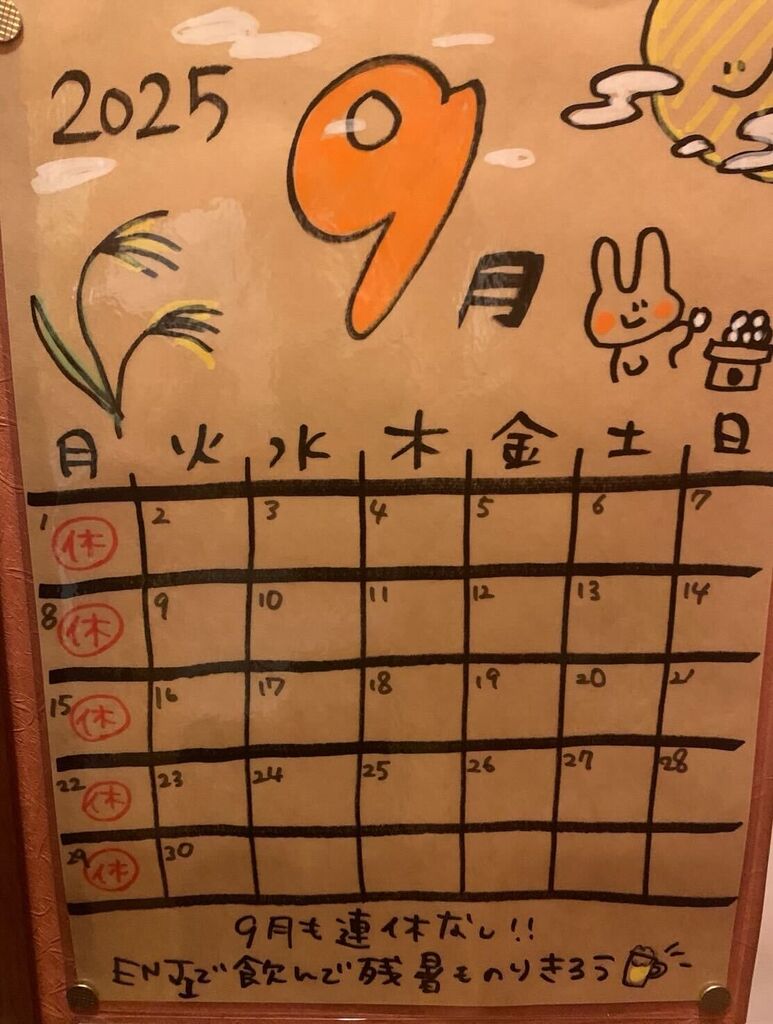 2025 9月
月 火 水 木 金 土 日
1 休 2 3 4 5 6 7
8 休 9 10 11 12 13 14
15 休 16 17 18 19 20 21
22 休 23 24 25 26 27 28
29 休 30
9月も連休なし!!
ENJIで飲んで残暑ものりきろう